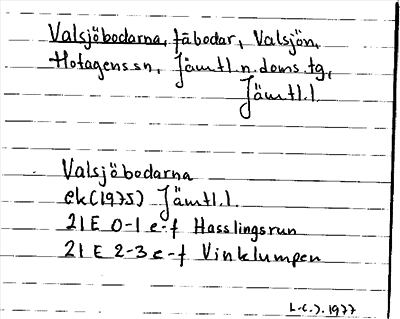 Valsjöbodarna, fäbodar, Valsjön,
Hotagens sn, Jämtl. n. doms. tg,
Jämtl. l.
Valsjöbodarna
ek (1975) Jämtl. l.
21 E 0-1 e-f Hasslingsrun
21 E 2-3 e-f Vinklumpen
L-C. J. 1977